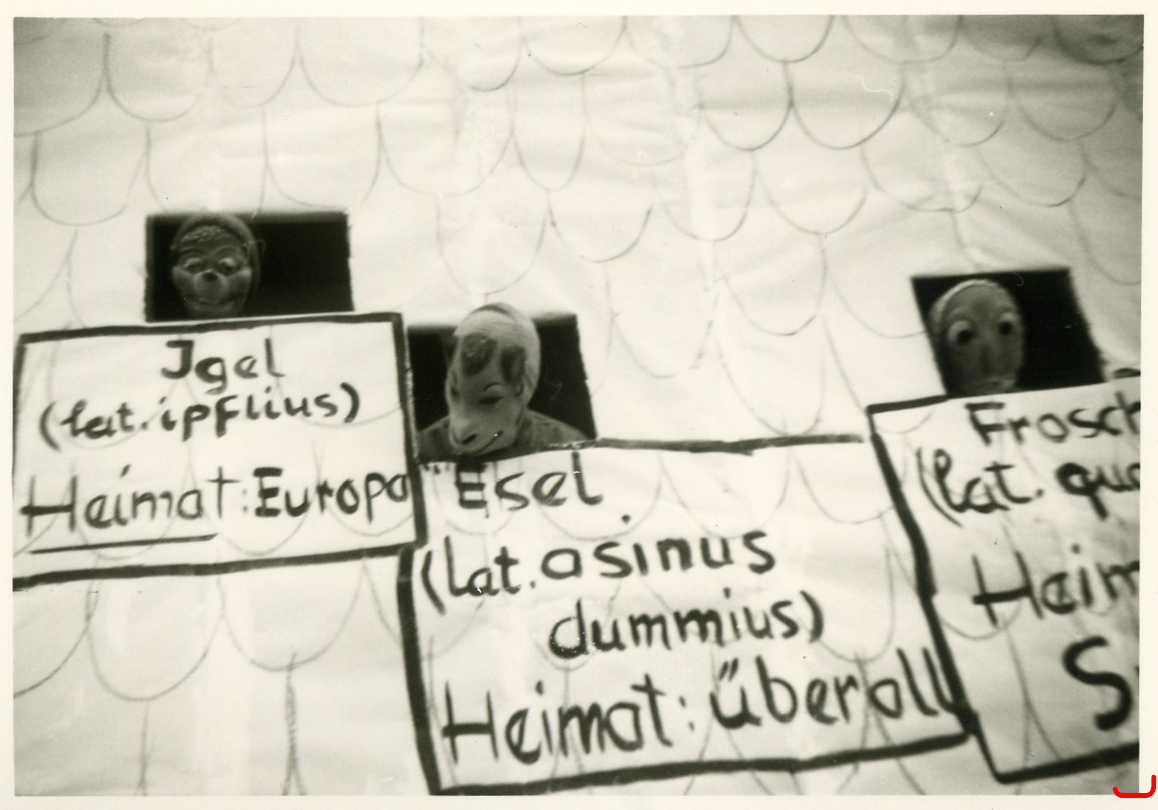 Jgel
(lat. ipflius)
Heimat: Europa
Esel
(lat. asinus
dummius)
Heimat: überall
Frosch
(lat. qua
Heim
S